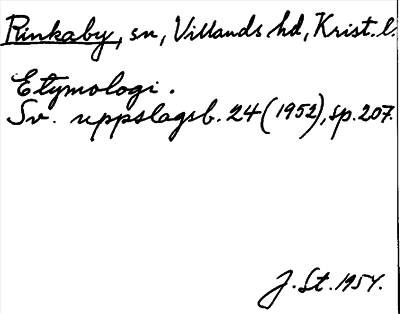 Rinkaby, sn, Villands hd, Krist. l.
Etymologi.
Sv. uppslagsb. 24 (1952), sp. 207.
J. St. 1954.